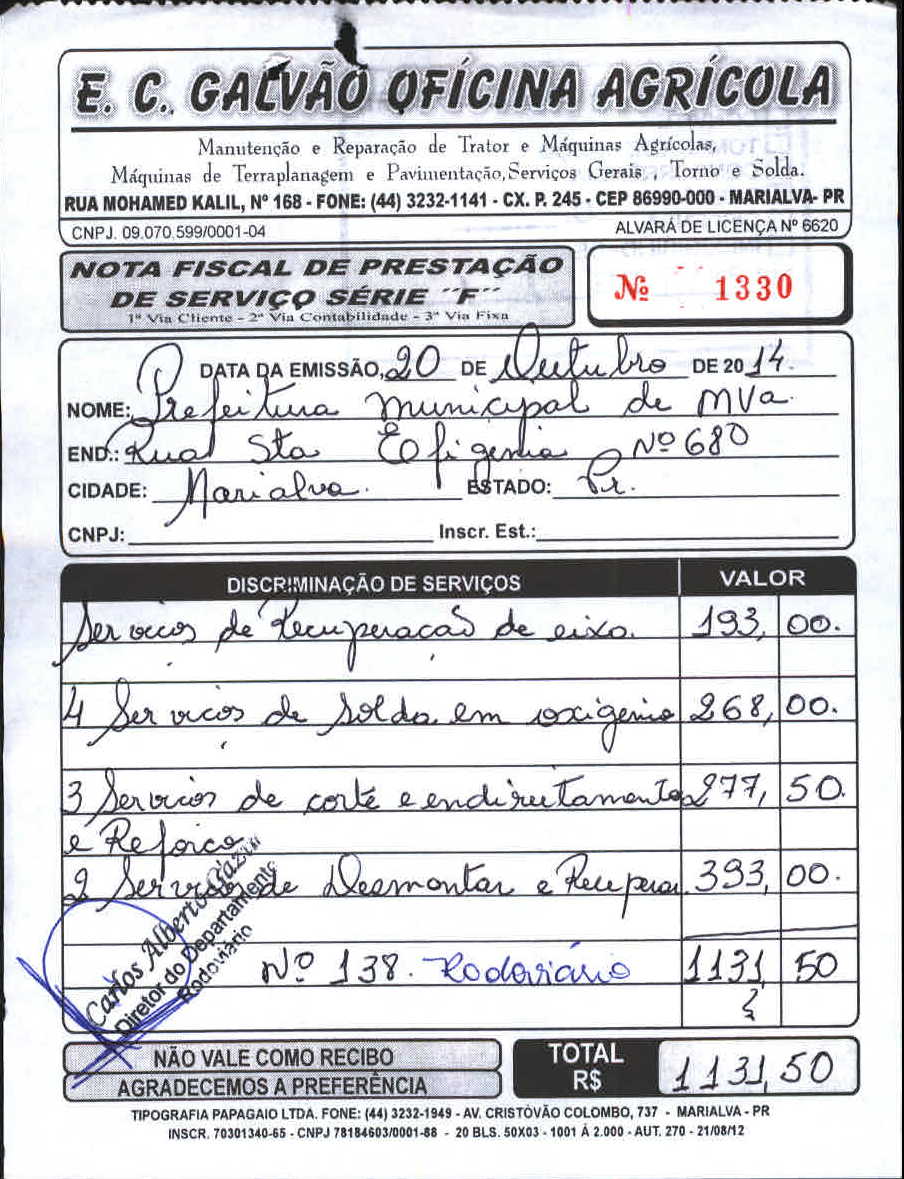 E. C. GALVÃO OFÍCINA AGRÍCOLA
Manutenção e Reparação de Trator e Máquinas Agrícolas,
Máquinas de Terraplanagem e Pavimentação, Serviços Gerais, Torno e Solda.
RUA MOHAMED KALIL, Nº 168 - FONE: (44) 3232-1141 - CX. P. 245 - CEP 86990-000 - MARIALVA- PR
CNPJ. 09.070.599/0001-04 ALVARÁ DE LICENÇA Nº 6620
NOTA FISCAL DE PRESTAÇÃO
DE SERVIÇO SÉRIE "F"
1ª Via Cliente - 2ª Via Contabilidade - 3ª Via Fixa
Nº 1330
DATA DA EMISSÃO, 20 DE Outubro DE 2014.
NOME: Prefeitura municipal de MVa.
END.: Rua Sta Efigenia Nº 680
CIDADE: Marialva. ESTADO: Pr.
CNPJ: Inscr. Est.:
DISCRIMINAÇÃO DE SERVIÇOS VALOR
Serviços de Recuperação de eixo. 193,00.
4 Serviços de Solda em oxigenio 268,00.
3 Serviços de corte e endireitamento 277,50.
e Reforço
2 Serviços de Desmontar e Recuperar 393,00.
Nº 138. Rodoviário 1131,50
Carlos Alberto
Diretor do Departamento
Rodoviário
NÃO VALE COMO RECIBO
AGRADECEMOS A PREFERÊNCIA
TOTAL R$ 1131,50
TIPOGRAFIA PAPAGAIO LTDA. FONE: (44) 3232-1949 - AV. CRISTÓVÃO COLOMBO, 737 - MARIALVA - PR
INSCR. 70301340-65 - CNPJ 78184603/0001-88 - 20 BLS. 50X03 - 1001 À 2.000 - AUT. 270 - 21/08/12